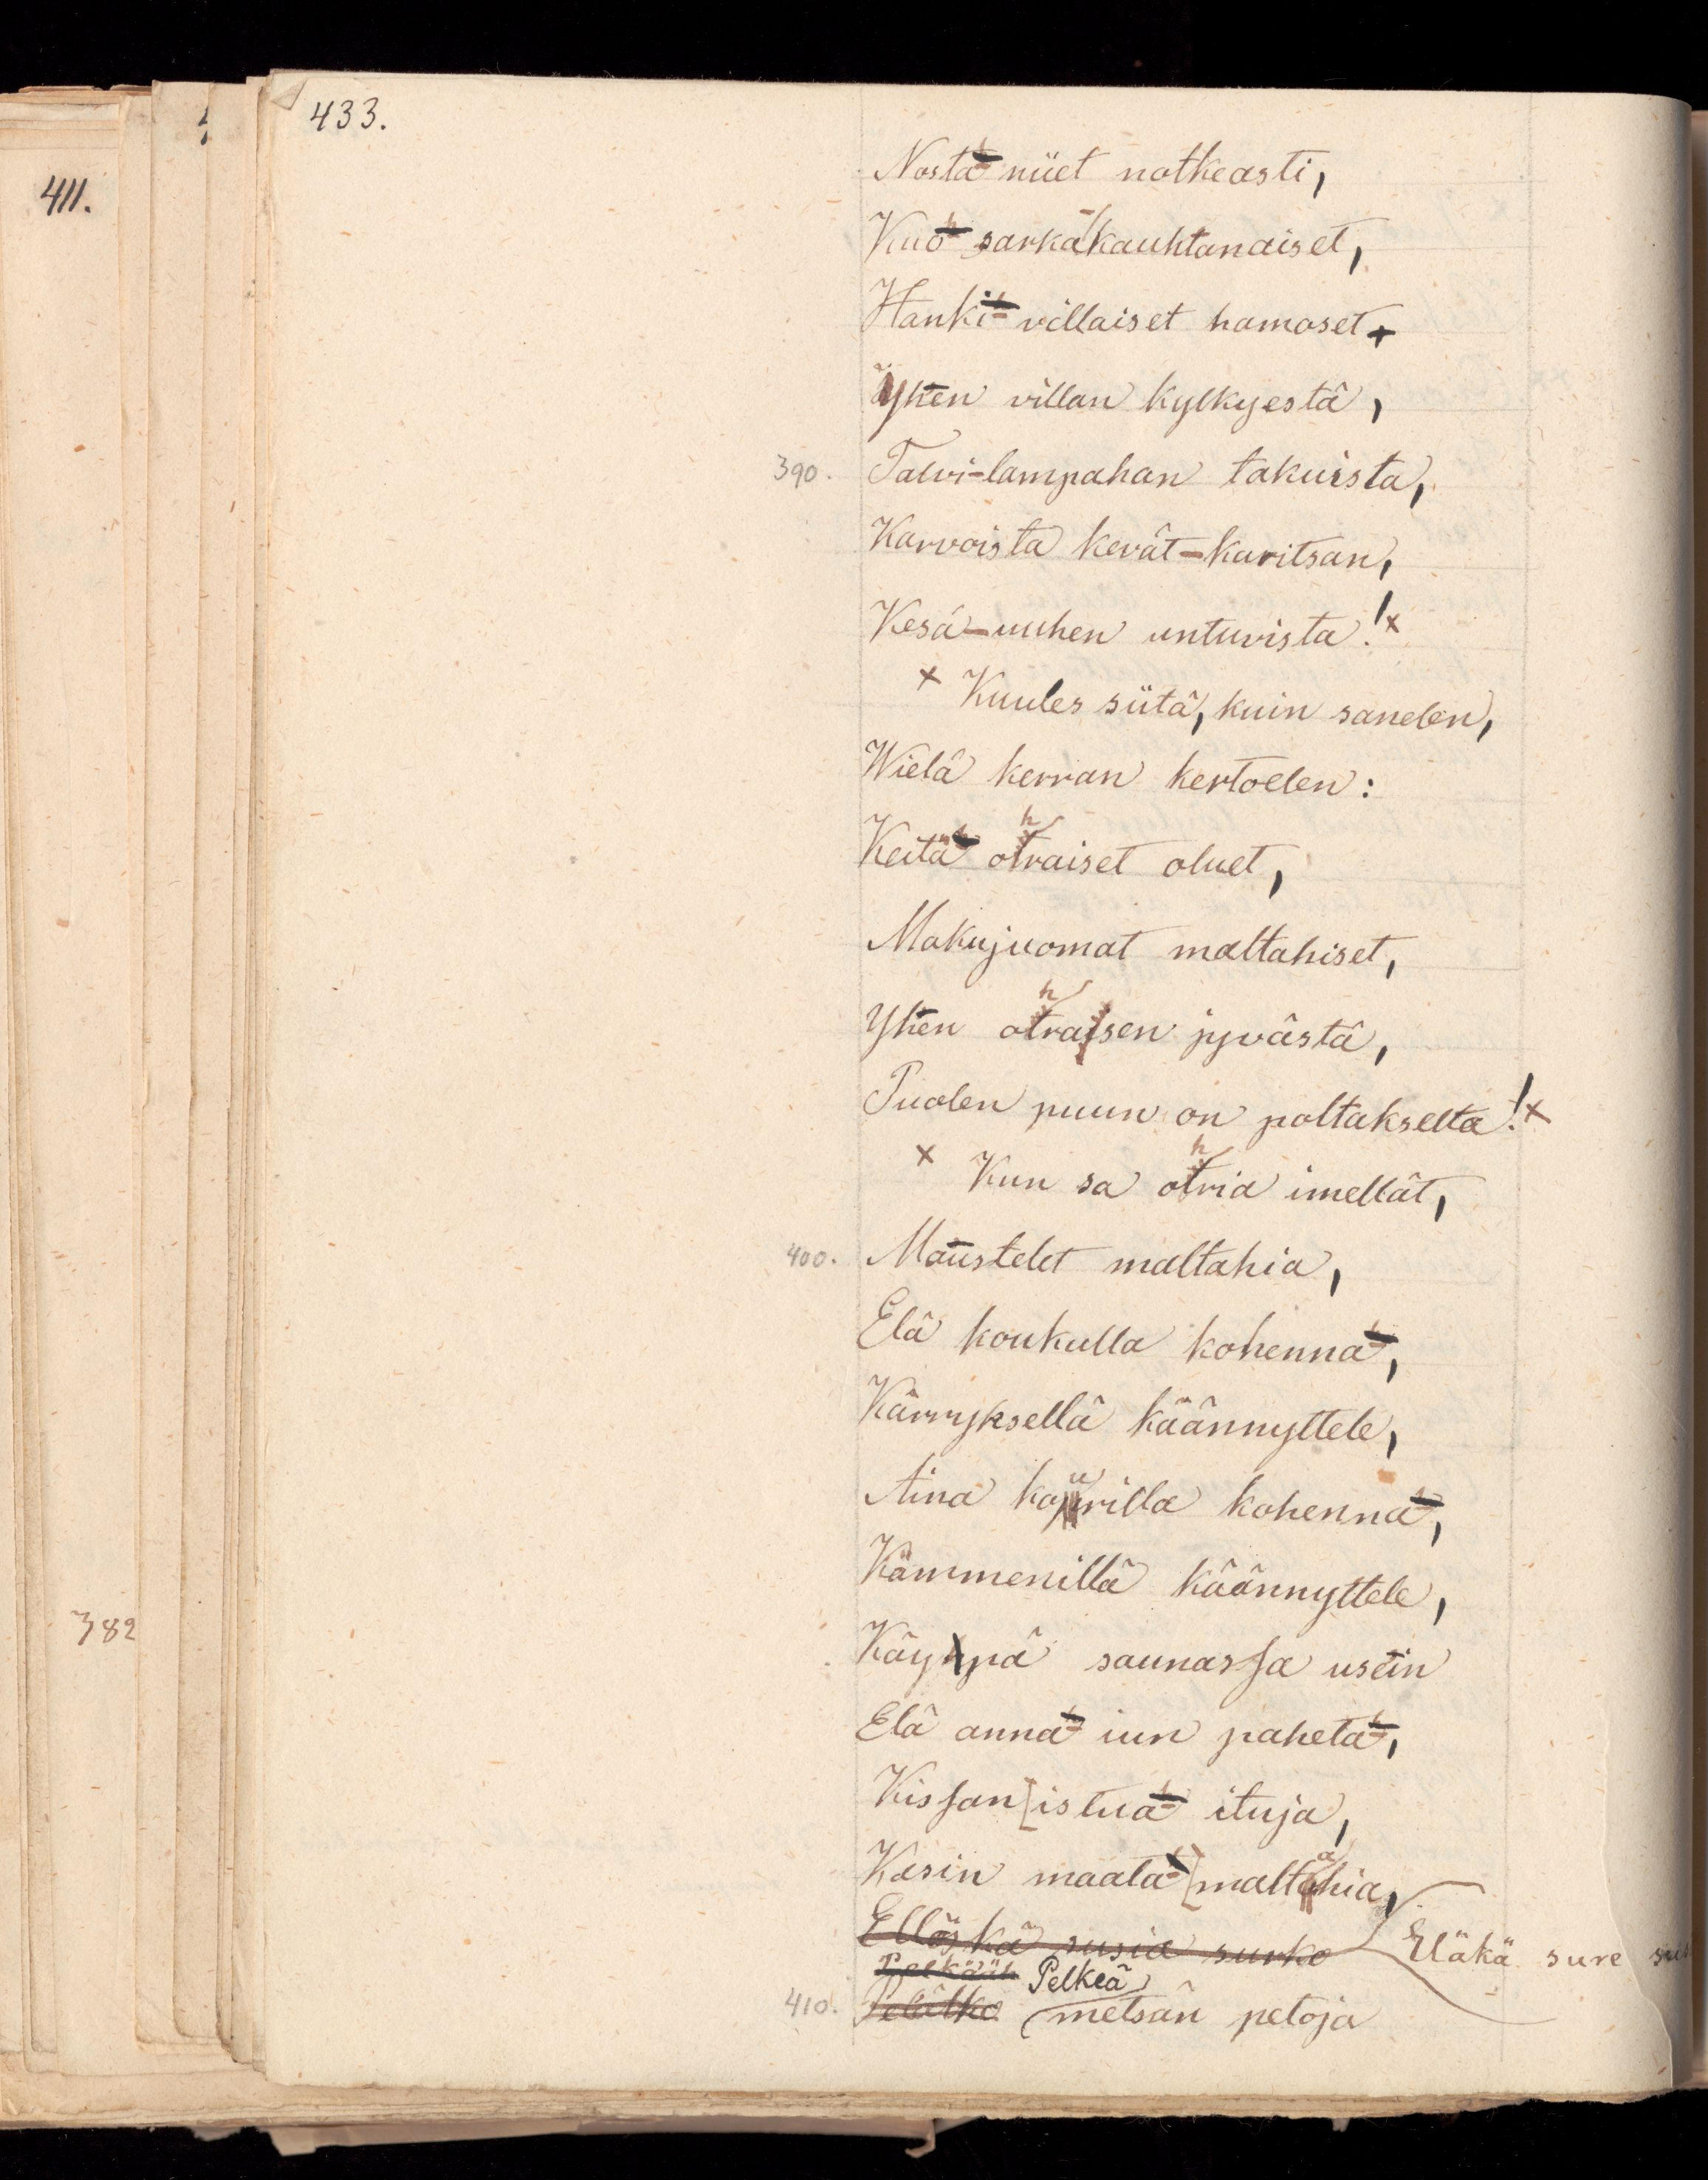 433.
411.
Nosta niiet notkeasti,
Kuo sarka-kauhtanaiset,
Hanki villaiset hamoset
Yhen villan kylkyestä,
390. Talvi-lampahan takuista,
Karvoista kevät-karitsan,
Kesä-uuhen untuvista!x
x Kuules siitä, kuin sanelen,
Wielä kerran kertoelen:
Keitä ohraiset oluet,
Makujuomat maltahiset,
Yhen ohrasen jyvästä,
Puolen puun on poltakselta!x
x Kun sa ohria imellät,
400. Maustelet maltahia,
Elä koukulla kohenna,
Kärryksellä käännyttele,
Aina kourilla kohenna,
Kämmenillä käännyttele,
382
Käypä saunassa usein
Elä anna iun paheta,
Kissan [istua ituja,
Kasin maata [maltahia,
Ellöskä susia surko Eläkä sure
Pelkään Pelkeä
410. Pelätkö metsän petoja